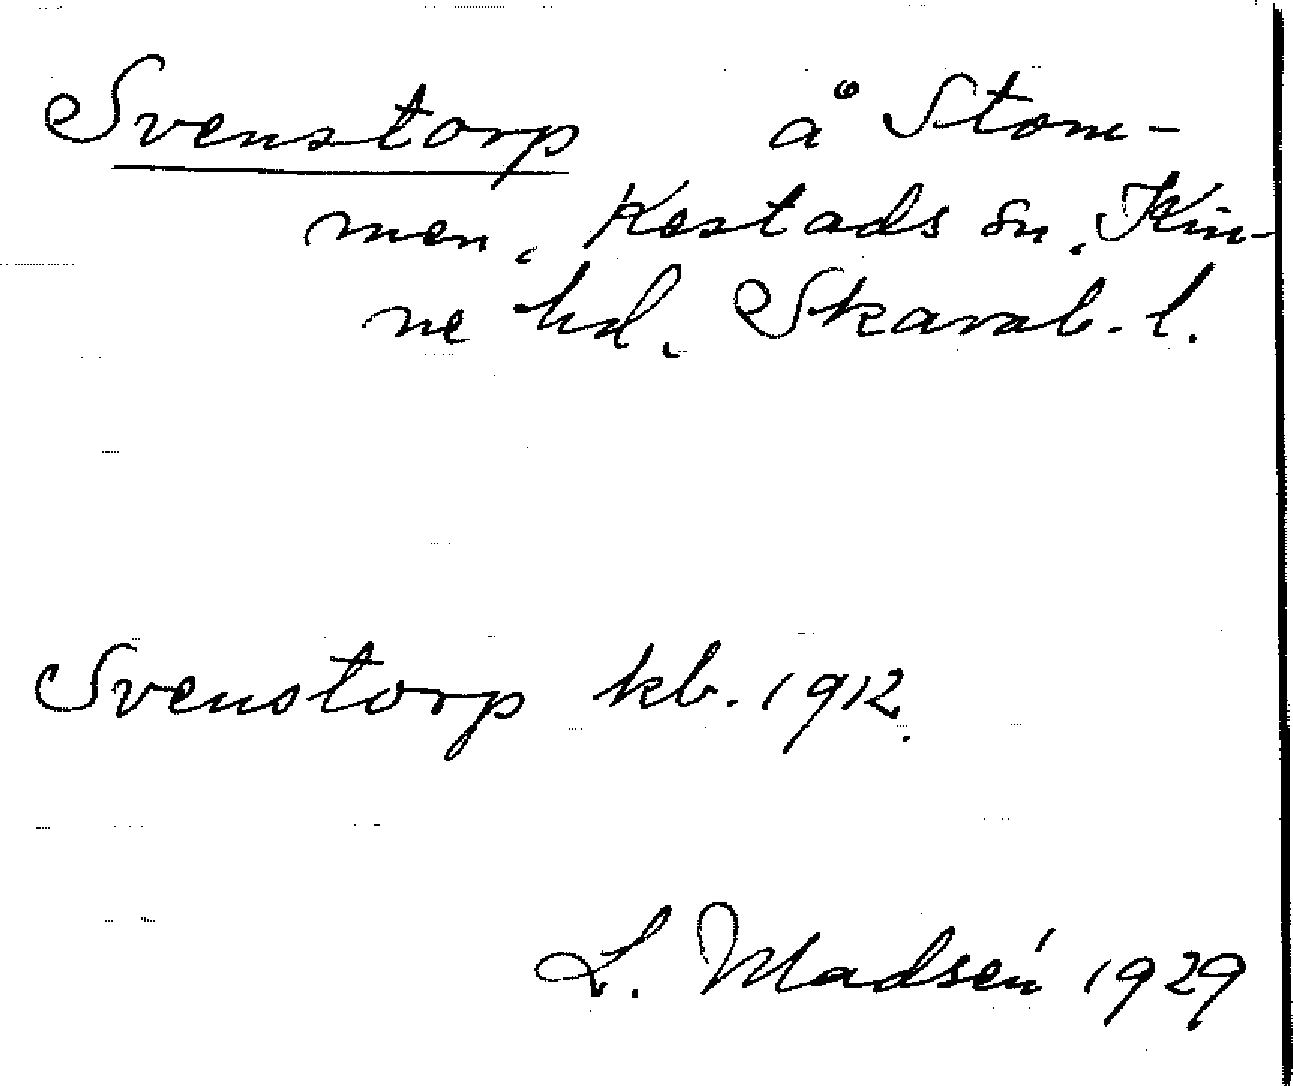 Svenstorp å Stom-
men, Kestads sn, Kin-
ne hd, Skarab. l.
Svenstorp kb. 1912.
L. Madsén 1929